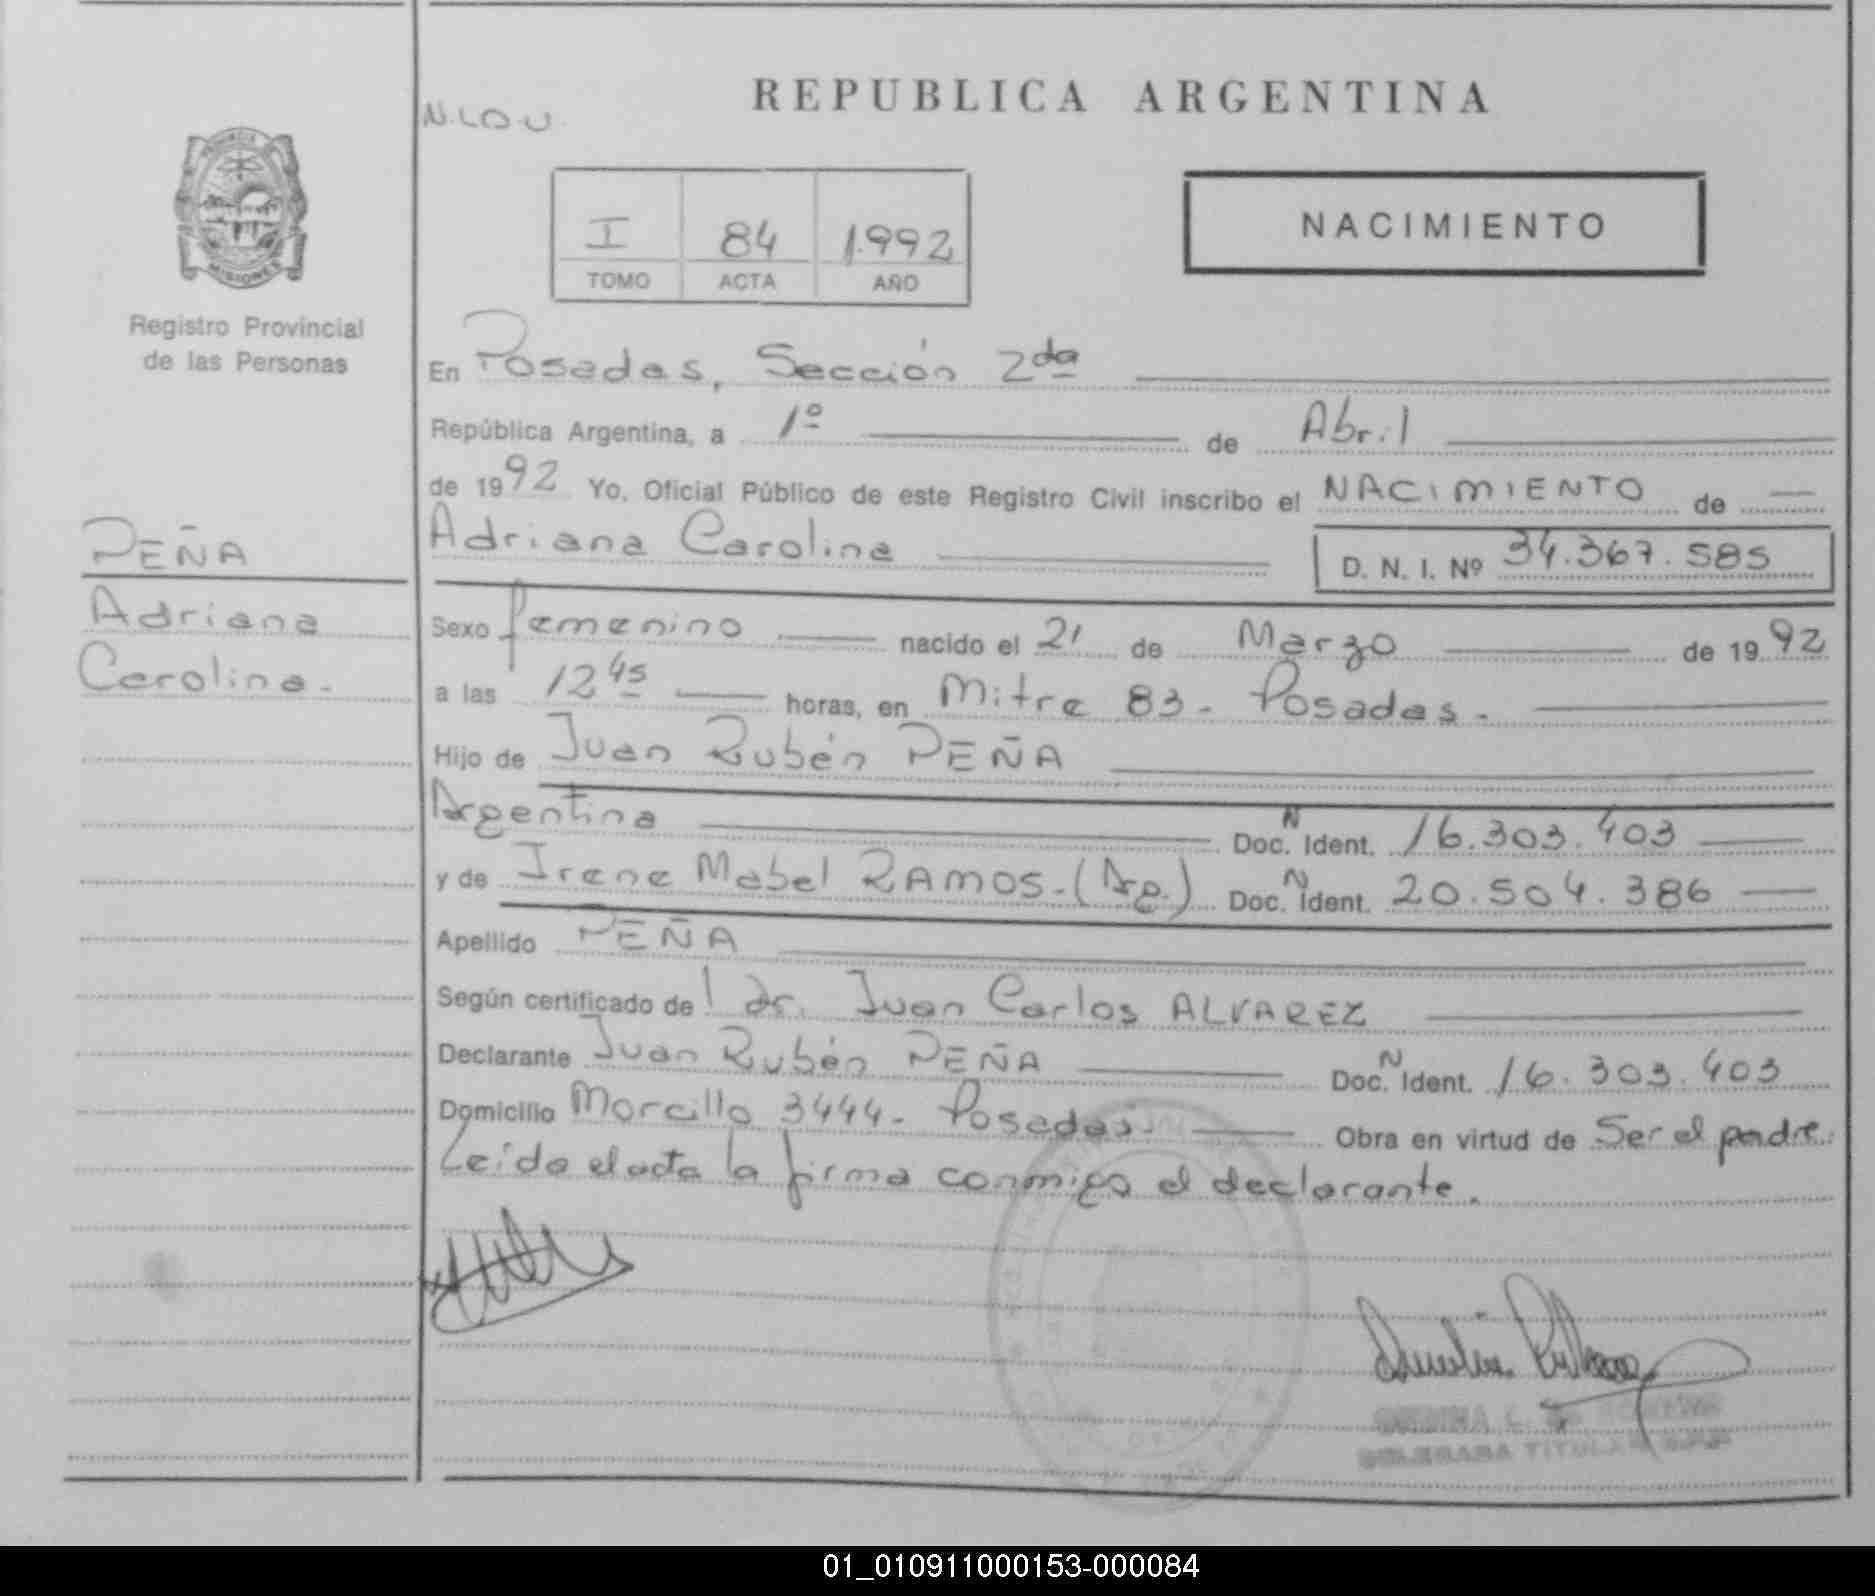 REPUBLICA ARGENTINA
N.LO.U.
MISIONES
Registro Provincial
de las Personas
I 84 1.992
TOMO ACTA AÑO
NACIMIENTO
En Posadas, Sección 2da
República Argentina, a 1º de Abril
de 1992 Yo, Oficial Público de este Registro Civil inscribo el NACIMIENTO de
Adriana Carolina D. N. I. Nº 34.367.585
PEÑA
Adriana
Carolina.
Sexo femenino nacido el 21 de Marzo de 1992
a las 12 45 horas, en Mitre 83 - Posadas.
Hijo de Juan Rubén PEÑA
Argentina Doc. N Ident. 16.303.403
y de Irene Mabel RAMOS.(Arg.) Doc. N Ident. 20.504.386
Apellido PEÑA
Según certificado del dr. Juan Carlos ALVAREZ
Declarante Juan Rubén PEÑA Doc. N Ident. 16.303.403
Domicilio Morcillo 3444- Posadas. Obra en virtud de Ser el padre.
Leída el acta la firma conmigo el declarante.
TITULAR
01_010911000153-000084